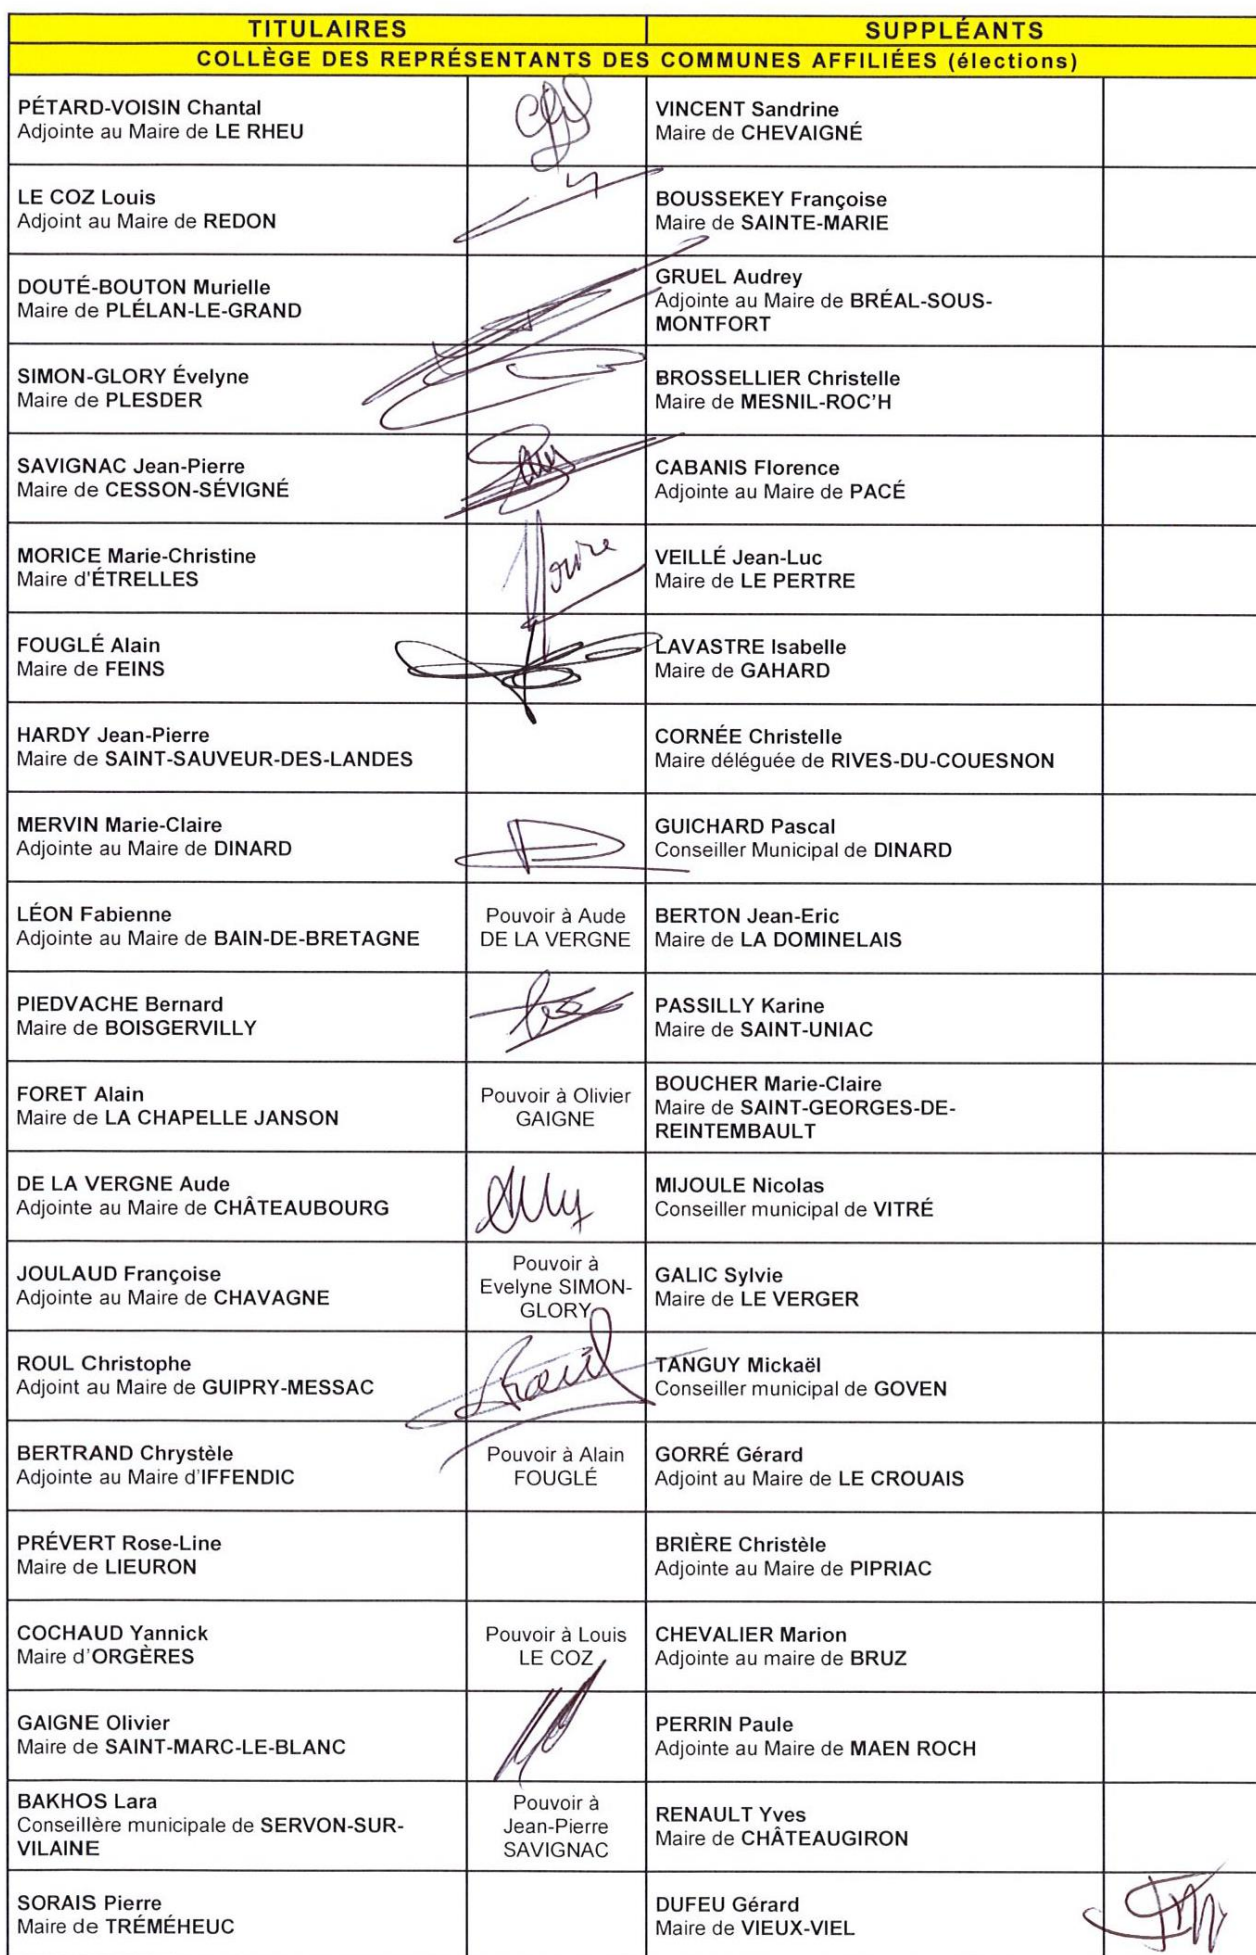 TITULAIRES
SUPPLÉANTS
COLLÈGE DES REPRÉSENTANTS DES COMMUNES AFFILIÉES (élections)
PÉTARD-VOISIN Chantal
Adjointe au Maire de LE RHEU
VINCENT Sandrine
Maire de CHEVAIGNÉ
LE COZ Louis
Adjoint au Maire de REDON
BOUSSEKEY Françoise
Maire de SAINTE-MARIE
DOUTÉ-BOUTON Murielle
Maire de PLÉLAN-LE-GRAND
GRUEL Audrey
Adjointe au Maire de BRÉAL-SOUS-
MONTFORT
SIMON-GLORY Évelyne
Maire de PLESDER
BROSSELLIER Christelle
Maire de MESNIL-ROC'H
SAVIGNAC Jean-Pierre
Maire de CESSON-SÉVIGNÉ
CABANIS Florence
Adjointe au Maire de PACÉ
MORICE Marie-Christine
Maire d'ÉTRELLES
VEILLÉ Jean-Luc
Maire de LE PERTRE
FOUGLÉ Alain
Maire de FEINS
LAVASTRE Isabelle
Maire de GAHARD
HARDY Jean-Pierre
Maire de SAINT-SAUVEUR-DES-LANDES
CORNÉE Christelle
Maire déléguée de RIVES-DU-COUESNON
MERVIN Marie-Claire
Adjointe au Maire de DINARD
GUICHARD Pascal
Conseiller Municipal de DINARD
LÉON Fabienne
Adjointe au Maire de BAIN-DE-BRETAGNE
Pouvoir à Aude
DE LA VERGNE
BERTON Jean-Eric
Maire de LA DOMINELAIS
PIEDVACHE Bernard
Maire de BOISGERVILLY
PASSILLY Karine
Maire de SAINT-UNIAC
FORET Alain
Maire de LA CHAPELLE JANSON
Pouvoir à Olivier
GAIGNE
BOUCHER Marie-Claire
Maire de SAINT-GEORGES-DE-
REINTEMBAULT
DE LA VERGNE Aude
Adjointe au Maire de CHÂTEAUBOURG
MIJOULE Nicolas
Conseiller municipal de VITRÉ
JOULAUD Françoise
Adjointe au Maire de CHAVAGNE
Pouvoir à
Evelyne SIMON-
GLORY
GALIC Sylvie
Maire de LE VERGER
ROUL Christophe
Adjoint au Maire de GUIPRY-MESSAC
TANGUY Mickaël
Conseiller municipal de GOVEN
BERTRAND Chrystèle
Adjointe au Maire d'IFFENDIC
Pouvoir à Alain
FOUGLÉ
GORRÉ Gérard
Adjoint au Maire de LE CROUAIS
PRÉVERT Rose-Line
Maire de LIEURON
BRIÈRE Christèle
Adjointe au Maire de PIPRIAC
COCHAUD Yannick
Maire d'ORGÈRES
Pouvoir à Louis
LE COZ
CHEVALIER Marion
Adjointe au maire de BRUZ
GAIGNE Olivier
Maire de SAINT-MARC-LE-BLANC
PERRIN Paule
Adjointe au Maire de MAEN ROCH
BAKHOS Lara
Conseillère municipale de SERVON-SUR-
VILAINE
Pouvoir à
Jean-Pierre
SAVIGNAC
RENAULT Yves
Maire de CHÂTEAUGIRON
SORAIS Pierre
Maire de TRÉMÉHEUC
DUFEU Gérard
Maire de VIEUX-VIEL